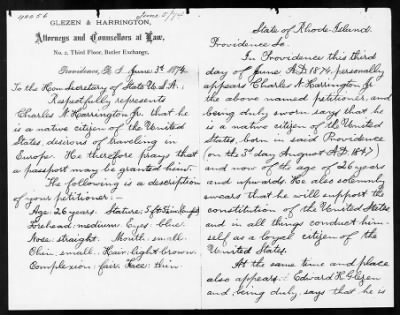 40056
June 5/74
GLEZEN & HARRINGTON,
Attorneys and Counsellors at Law,
No. 2, Third Floor, Butler Exchange,
Providence, R. I. June 3d 1874
To the Hon. Secretary of State U.S.A.:
Respectfully represents
Charles N. Harrington Jr. that he
is a native citizen of the United
States, desirous of traveling in
Europe. He therefore prays that
a passport may be granted him.
The following is a description
of your petitioner:—
Age: 26 years. Stature: 5 ft
Forehead: medium. Eyes: blue.
Nose: straight. Mouth: small.
Chin: small. Hair: light brown.
Complexion: fair. Face: thin.
State of Rhode Island.
Providence Sc.
In Providence this third
day of June A.D. 1874, personally
appears Charles N. Harrington Jr.
the above named petitioner, and
being duly sworn says that he
is a native citizen of the United
States, born in said Providence
(on the 3d day August A.D. 1847)
and now of the age of 26 years
and upwards. He also solemnly
swears that he will support the
constitution of the United States
and in all things conduct him-
self as a loyal citizen of the
United States.
At the same time and place
also appears: Edward K. Glezen
and being duly, say that he is